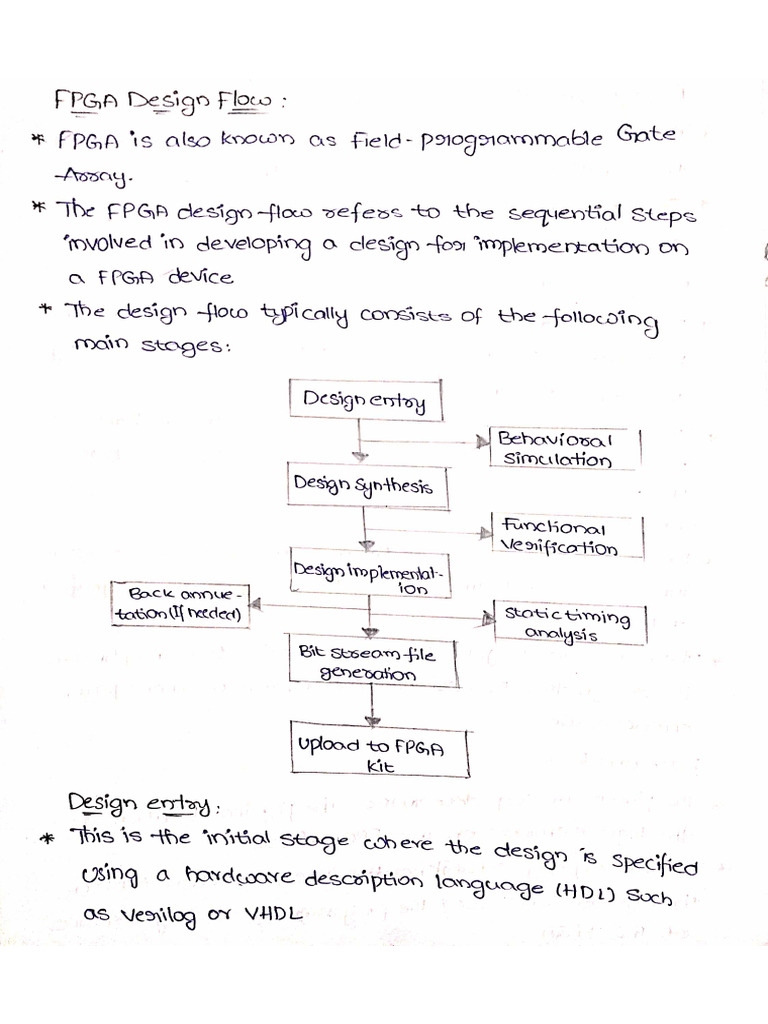 FPGA Design Flow :
* FPGA is also known as Field-programmable Gate
Array.
* The FPGA design flow refers to the sequential steps
involved in developing a design for implementation on
a FPGA device
* The design flow typically consists of the following
main stages:
Design entry
Behavioral
simulation
Design Synthesis
Functional
Verification
Design implementat-
ion
Back annue-
tation (If needed)
Static timing
analysis
Bit stream file
generation
Upload to FPGA
kit
Design entry:
* This is the initial stage where the design is specified
using a hardware description language (HDL) Such
as Verilog or VHDL